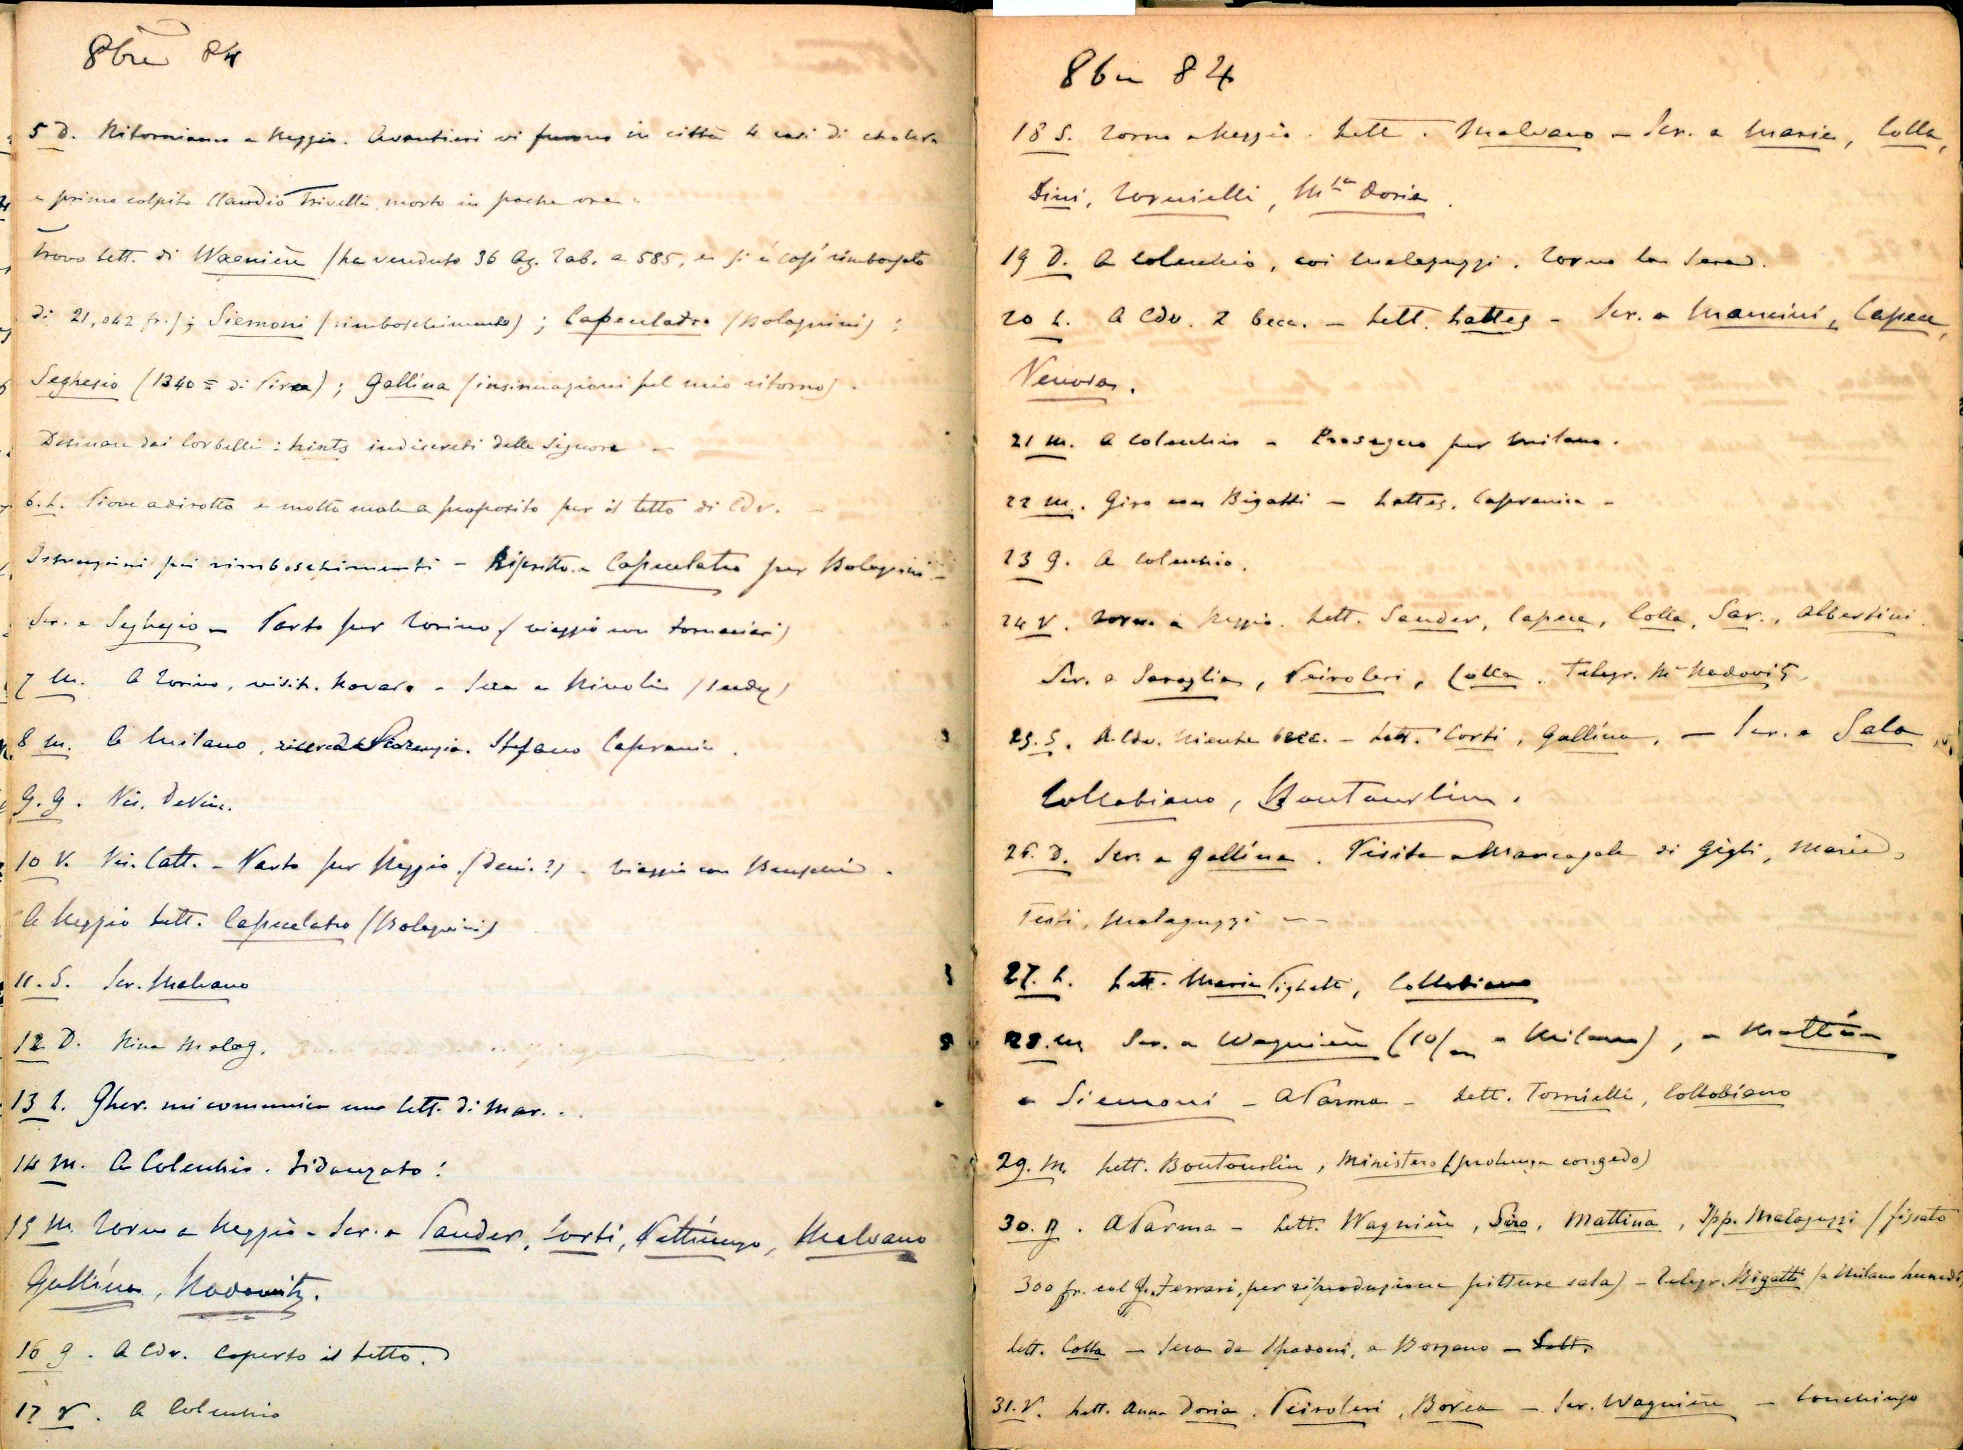 8bre 84
5 D. Ritorniamo a Reggio. Avantieri vi furono in città 4 casi di cholera
e primo colpito Claudio Trivelli, morto in poche ore.
Trovo lett. di Wagnière (ha venduto 36 Az. Tab. a 585, e si è così rimborsato
di 21,042 fr.); Siemoni (rimboschimento); Capecelatro (Bolognini);
Seghesio (1340 = di Pirea); Gallina (insinuazioni sul mio ritorno).
Desinare dai Corbelli: hints indiscreti delle Signore -
6. L. Piove a dirotto e molto male a proposito per il tetto di Cdv. -
Istruzioni pei rimboschimenti - Rispetto a Capecelatro per Bolognini -
Scr. a Seghesio - Parto per Torino (viaggio con Fornaciari)
7 M. A Torino, visit. Novara - Sera a Rivoli
8 M. A Milano, Stefano Capranica.
9. G. Vis.
10 V. Vis. Catt. - Parto per Reggio. - Viaggio con
A Reggio lett. Capecelatro (Bolognini)
11. S. Scr. Malvano
12 D. Nina Malag.
13 L. Gher. mi comunica una lett. di Mar. . .
14 M. A Colecchio. Fidanzato!
15 M. Torno a Reggio - Scr. a Sander, Corti, Malvano
Gallina, Nadowitz.
16 G. A Cdv. Coperto il tetto.
17 V. A Colecchio
8bre 84
18 S. Torno a Reggio. Lett. Malvano - Scr. a Maria, Colla,
Dini, Tornielli, Msa Doria.
19 D. A Colecchio, coi Malaguzzi. Torno la sera.
20 L. A Cdv. 2 becc. - Lett. Lattes - Scr. a Mancini, Capece,
Venosa.
21 M. A Colecchio - Proseguo per Milano.
22 M. Giro con Bigatti - Lattes, Capranica -
23 G. A Colecchio.
24 V. Torno a Reggio. Lett. Sander, Capece, Colla, Sar., Albertini.
Scr. a Peiroleri, Colla. Telegr. Nadowitz
25. S. A Cdv. Niente becc. - Lett. Corti, Gallina, - Scr. a Sala
Collobiano, Boutourlin.
26. D. Scr. a Gallina. Visita a Mancasale di Gigli, Maria,
Testi, Malaguzzi - -
27. L. Lett. Maria Pighetti, Collobiano
28. M Scr. a Wagnière (10/m a Milano), a Mattina
a Siemoni - A Parma - Lett. Tornielli, Collobiano
29. M. Lett. Boutourlin, Ministero (prolunga congedo)
30. G. A Parma - Lett. Wagnière, Siro, Mattina, Ipp. Malaguzzi (fissato
300 fr. col G. Ferrari, per riproduzione pitture sala) - Telegr. Bigatti (a Milano lunedì)
Lett. Colla - Sera da Spadoni, a Borzano - Lett.
31. V. Lett. Anna Doria, Peiroleri, Borea - Scr. Wagnière -